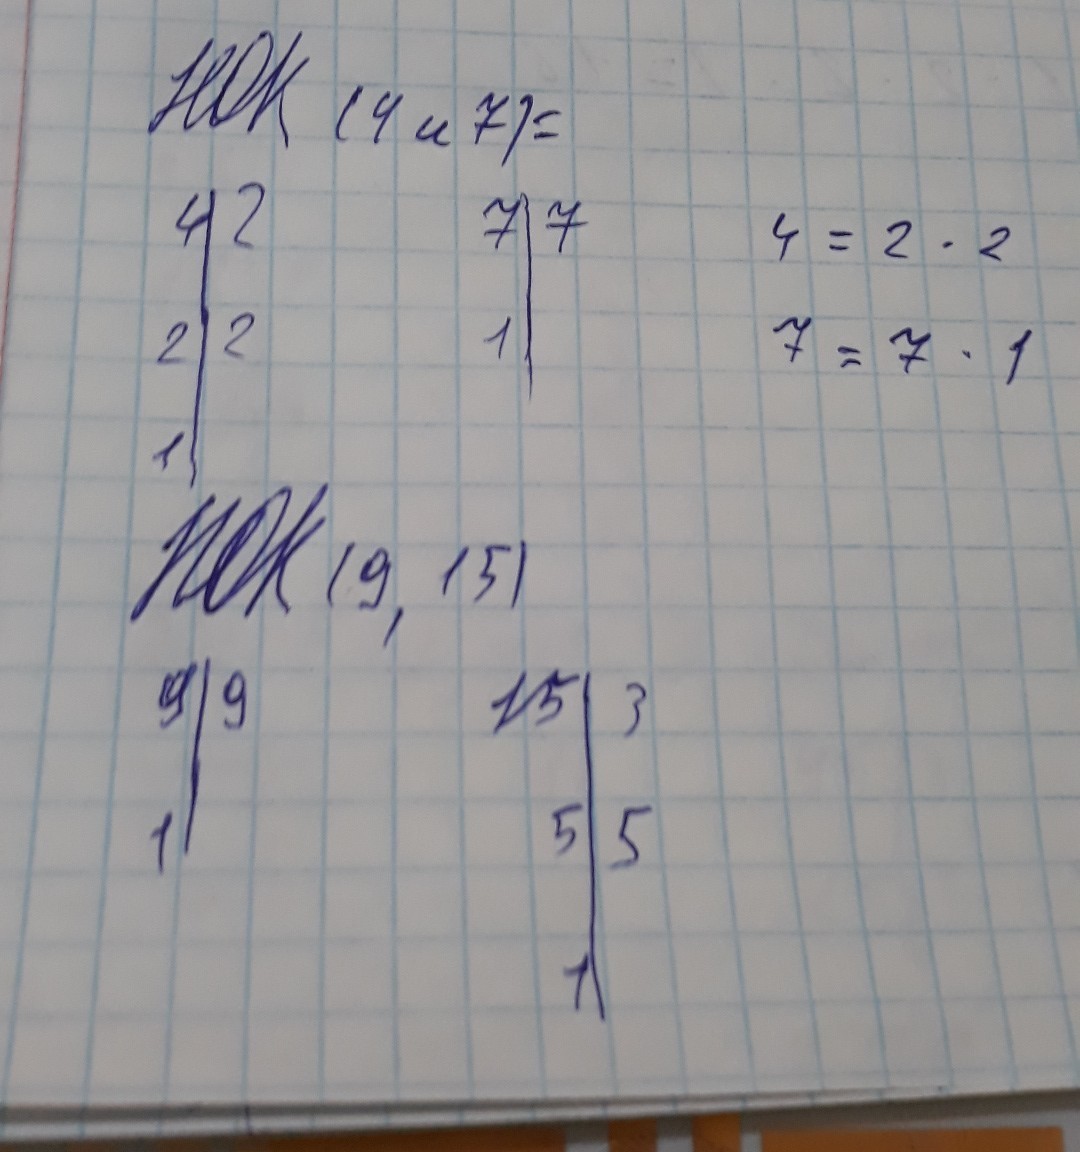 НОК (4 и 7)=
4 | 2 7 | 7 4 = 2 · 2
2 | 2 1 | 7 = 7 · 1
1 |
НОК (9, 15)
9 | 9 15 | 3
1 | 5 | 5
1 |